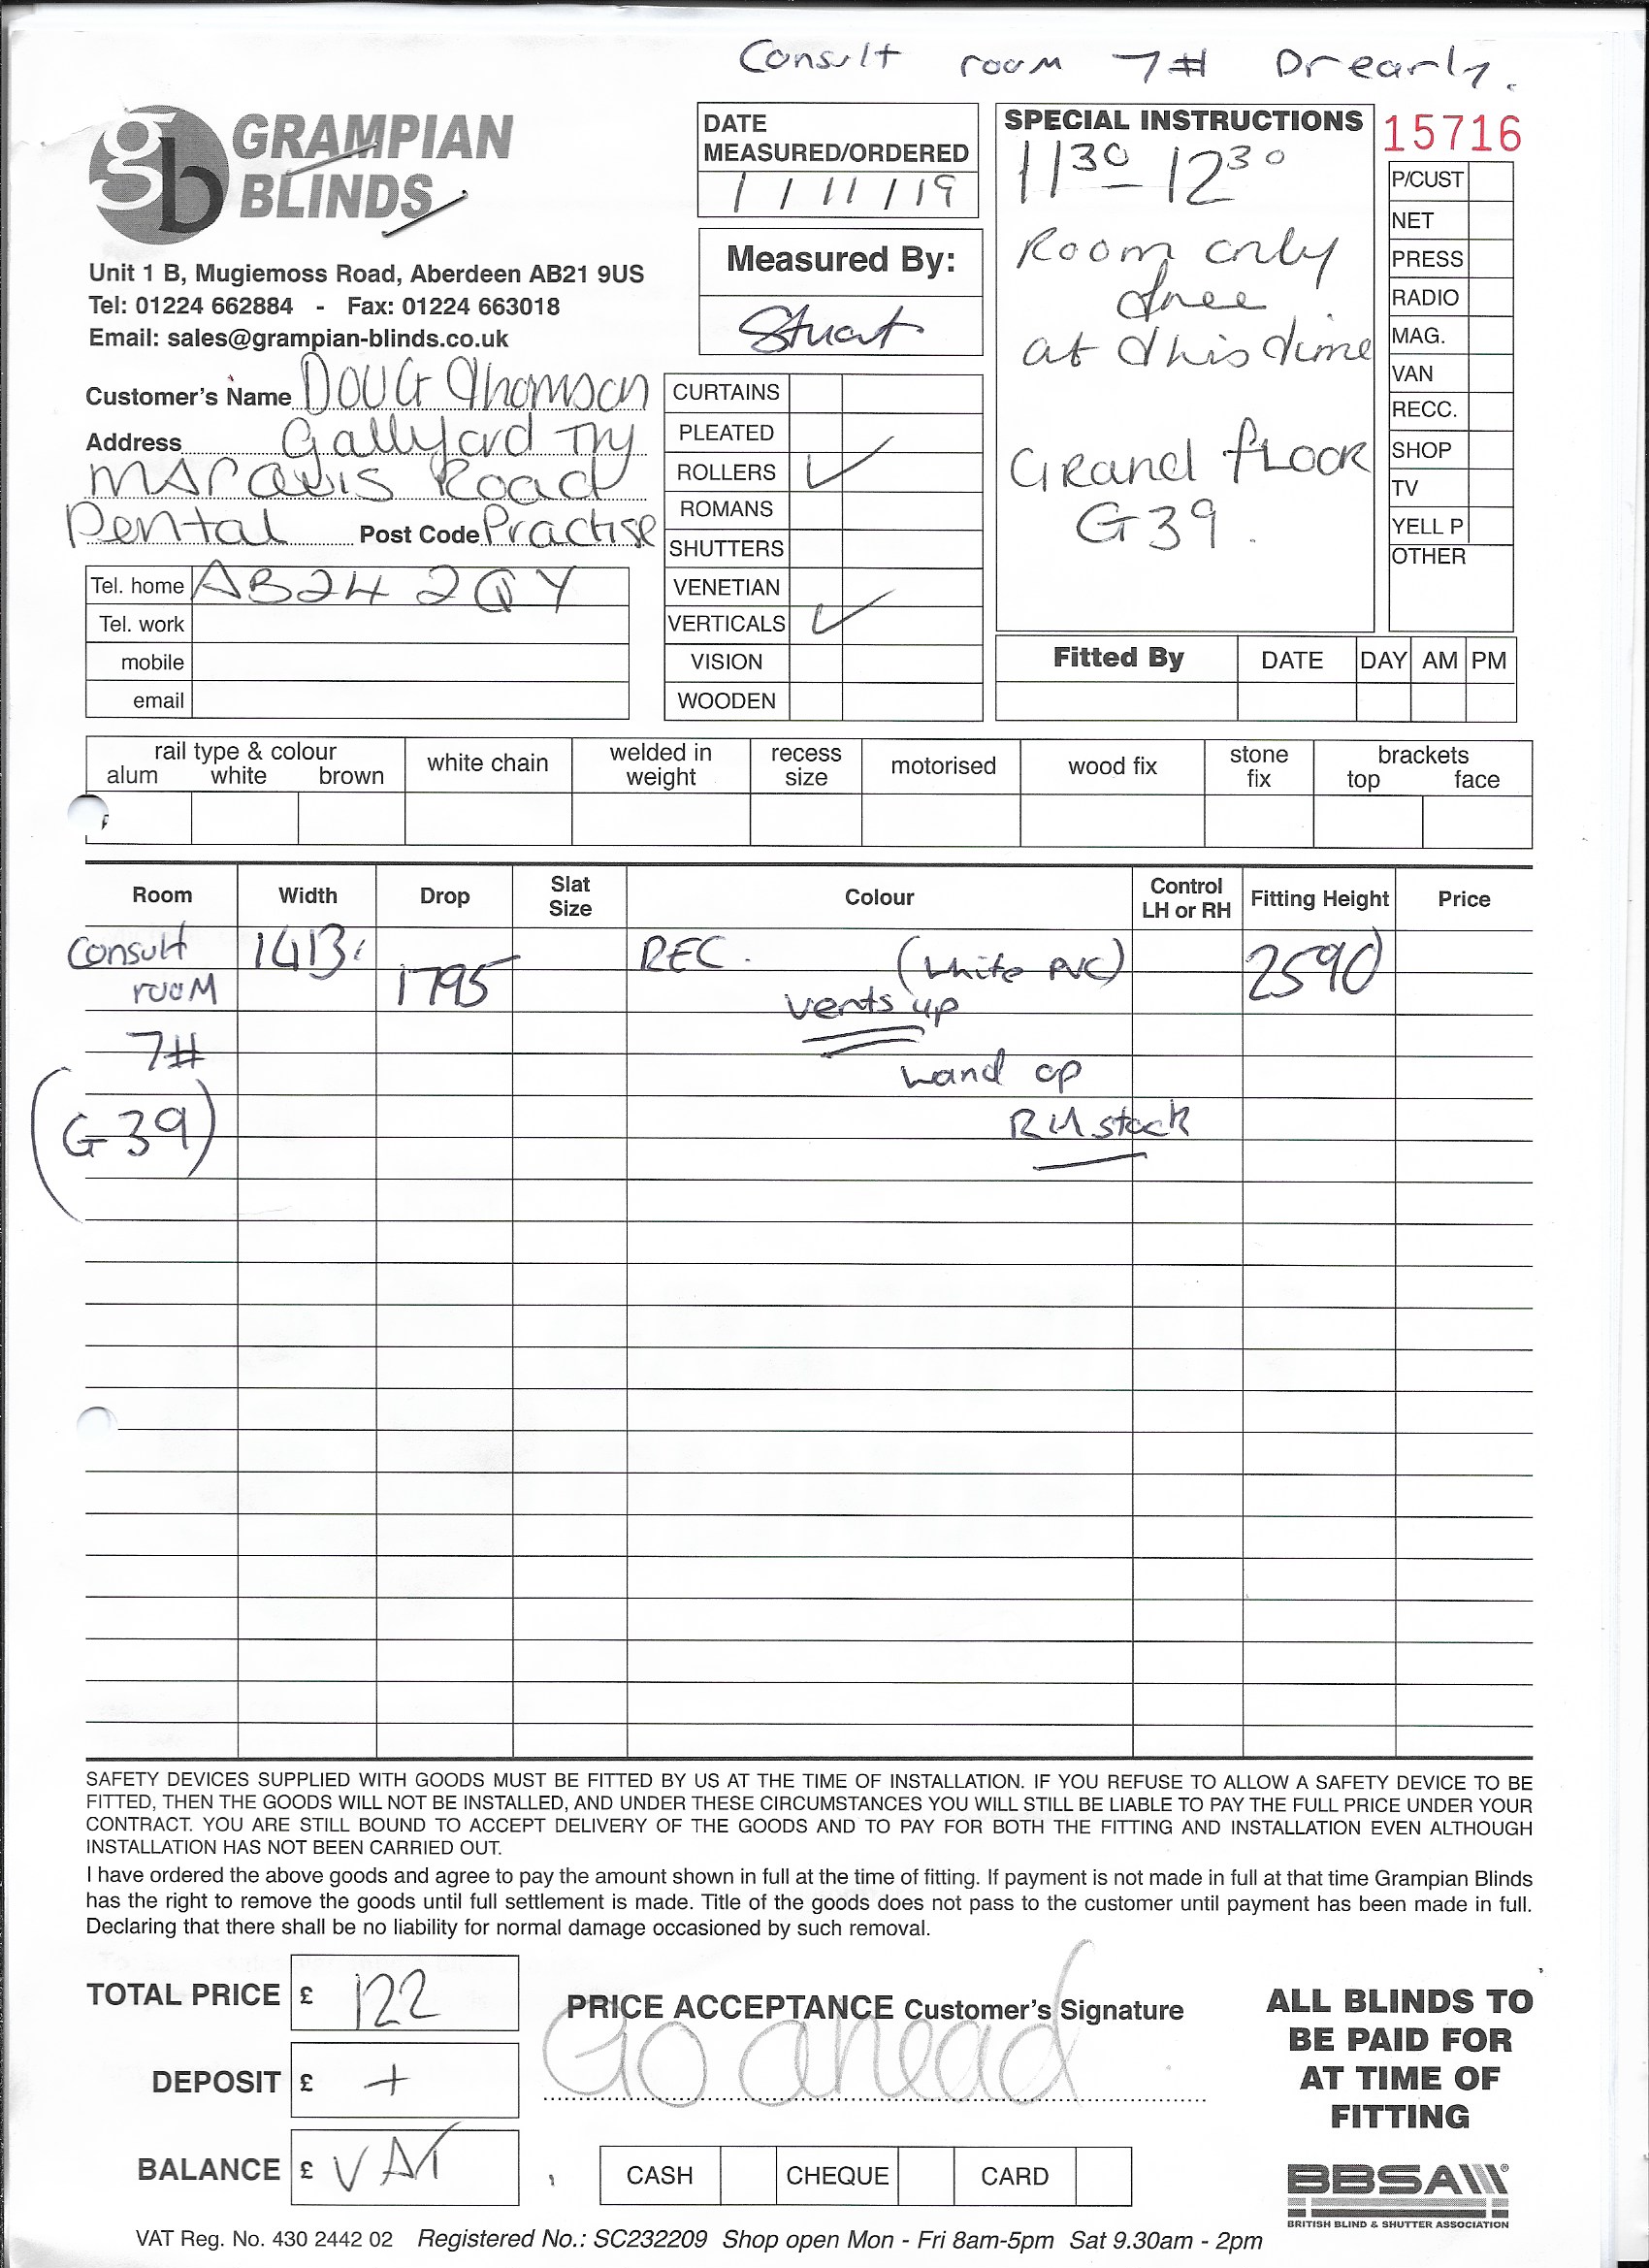 Consult room 7# Dr early.
GRAMPIAN
BLINDS
Unit 1 B, Mugiemoss Road, Aberdeen AB21 9US
Tel: 01224 662884 - Fax: 01224 663018
Email: sales@grampian-blinds.co.uk
Customer's Name DOUG Thomson
Address Gallyford Try
Road
Dental Post Code Practise
Tel. home AB24 2QY
Tel. work
mobile
email
DATE
MEASURED/ORDERED
1/11/19
Measured By:
Stuart
CURTAINS
PLEATED
ROLLERS ✓
ROMANS
SHUTTERS
VENETIAN
VERTICALS ✓
VISION
WOODEN
SPECIAL INSTRUCTIONS
11 30 - 12 30
Room only
free
at this time
Grand FLOOR
G39.
15716
P/CUST
NET
PRESS
RADIO
MAG.
VAN
RECC.
SHOP
TV
YELL P
OTHER
Fitted By DATE DAY AM PM
rail type & colour
alum white brown
white chain
welded in
weight
recess
size
motorised
wood fix
stone
fix
brackets
top face
Room Width Drop Slat Size Colour Control LH or RH Fitting Height Price
Consult 1413 REC. (White PVC) 2590
room 1795 vents up
7# wand op
(G39) RH stack
SAFETY DEVICES SUPPLIED WITH GOODS MUST BE FITTED BY US AT THE TIME OF INSTALLATION. IF YOU REFUSE TO ALLOW A SAFETY DEVICE TO BE
FITTED, THEN THE GOODS WILL NOT BE INSTALLED, AND UNDER THESE CIRCUMSTANCES YOU WILL STILL BE LIABLE TO PAY THE FULL PRICE UNDER YOUR
CONTRACT. YOU ARE STILL BOUND TO ACCEPT DELIVERY OF THE GOODS AND TO PAY FOR BOTH THE FITTING AND INSTALLATION EVEN ALTHOUGH
INSTALLATION HAS NOT BEEN CARRIED OUT.
I have ordered the above goods and agree to pay the amount shown in full at the time of fitting. If payment is not made in full at that time Grampian Blinds
has the right to remove the goods until full settlement is made. Title of the goods does not pass to the customer until payment has been made in full.
Declaring that there shall be no liability for normal damage occasioned by such removal.
TOTAL PRICE £ 122
DEPOSIT £ +
BALANCE £ VAT
PRICE ACCEPTANCE Customer's Signature
Go ahead
CASH CHEQUE CARD
ALL BLINDS TO
BE PAID FOR
AT TIME OF
FITTING
BBSA
BRITISH BLIND & SHUTTER ASSOCIATION
VAT Reg. No. 430 2442 02 Registered No.: SC232209 Shop open Mon - Fri 8am-5pm Sat 9.30am - 2pm